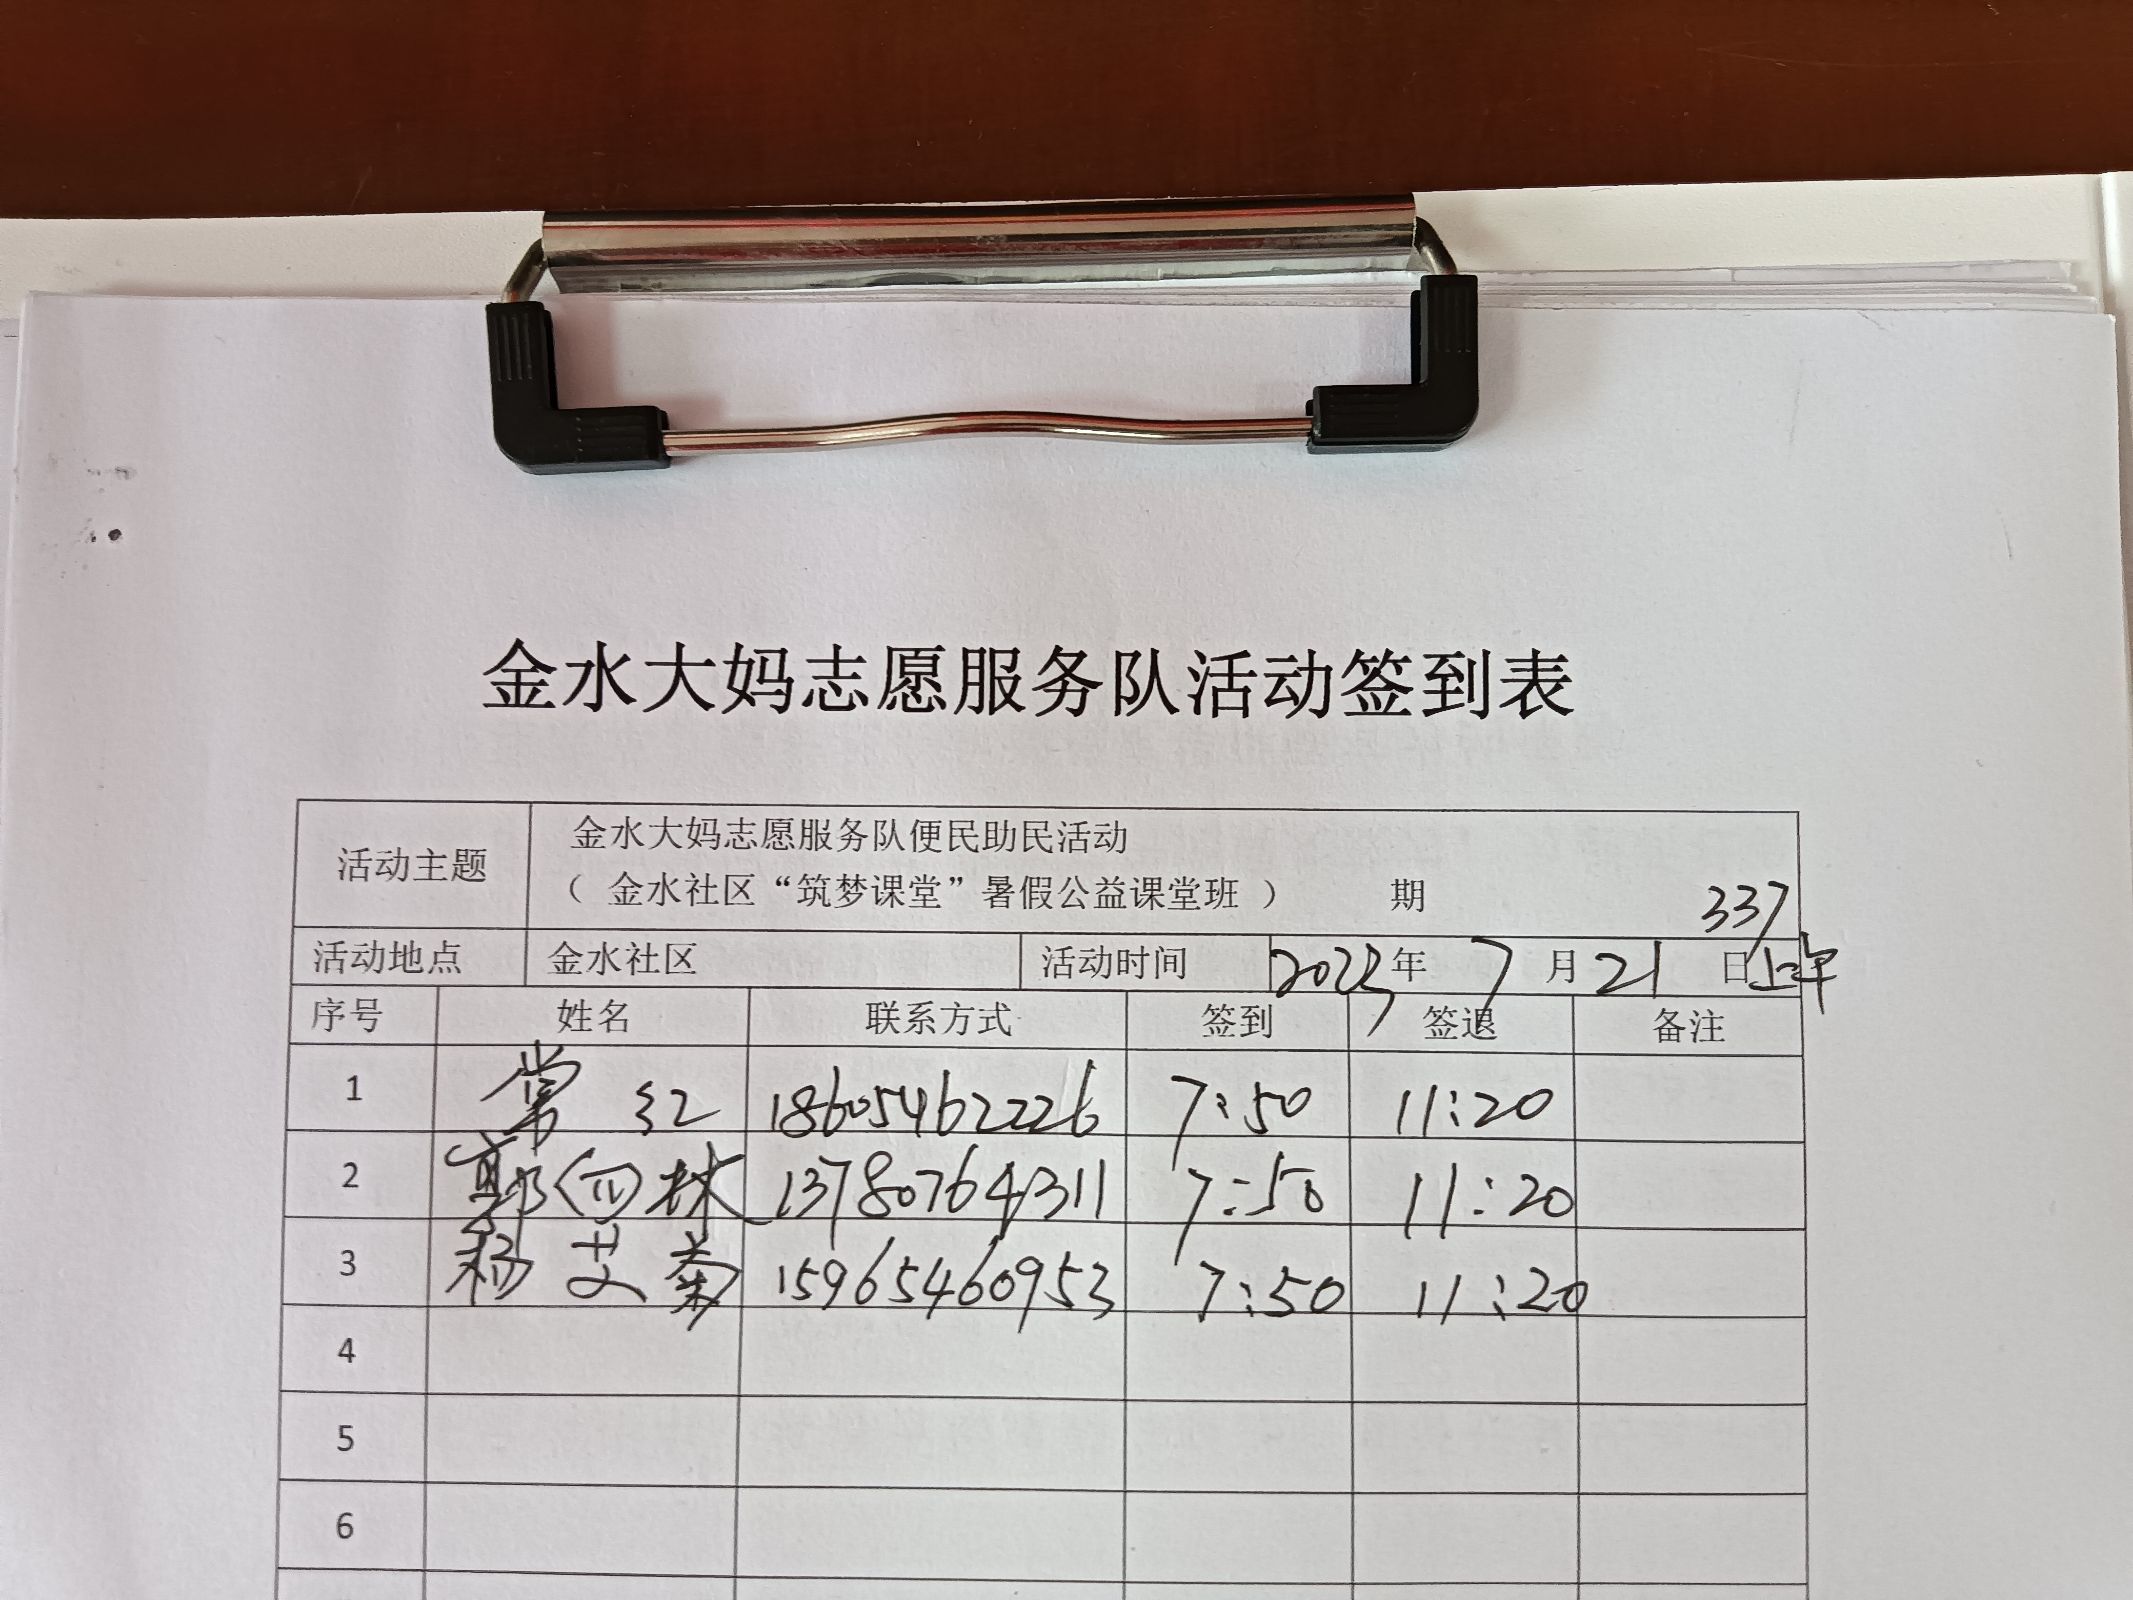 金水大妈志愿服务队活动签到表
活动主题 金水大妈志愿服务队便民助民活动
（ 金水社区“筑梦课堂”暑假公益课堂班 ） 期 337
活动地点 金水社区 活动时间 2025年 7 月 21 日 上午
序号 姓名 联系方式 签到 签退 备注
1 常红 18605462226 7:50 11:20
2 郭四林 13780764311 7:50 11:20
3 杨艾菊 15965460953 7:50 11:20
4
5
6